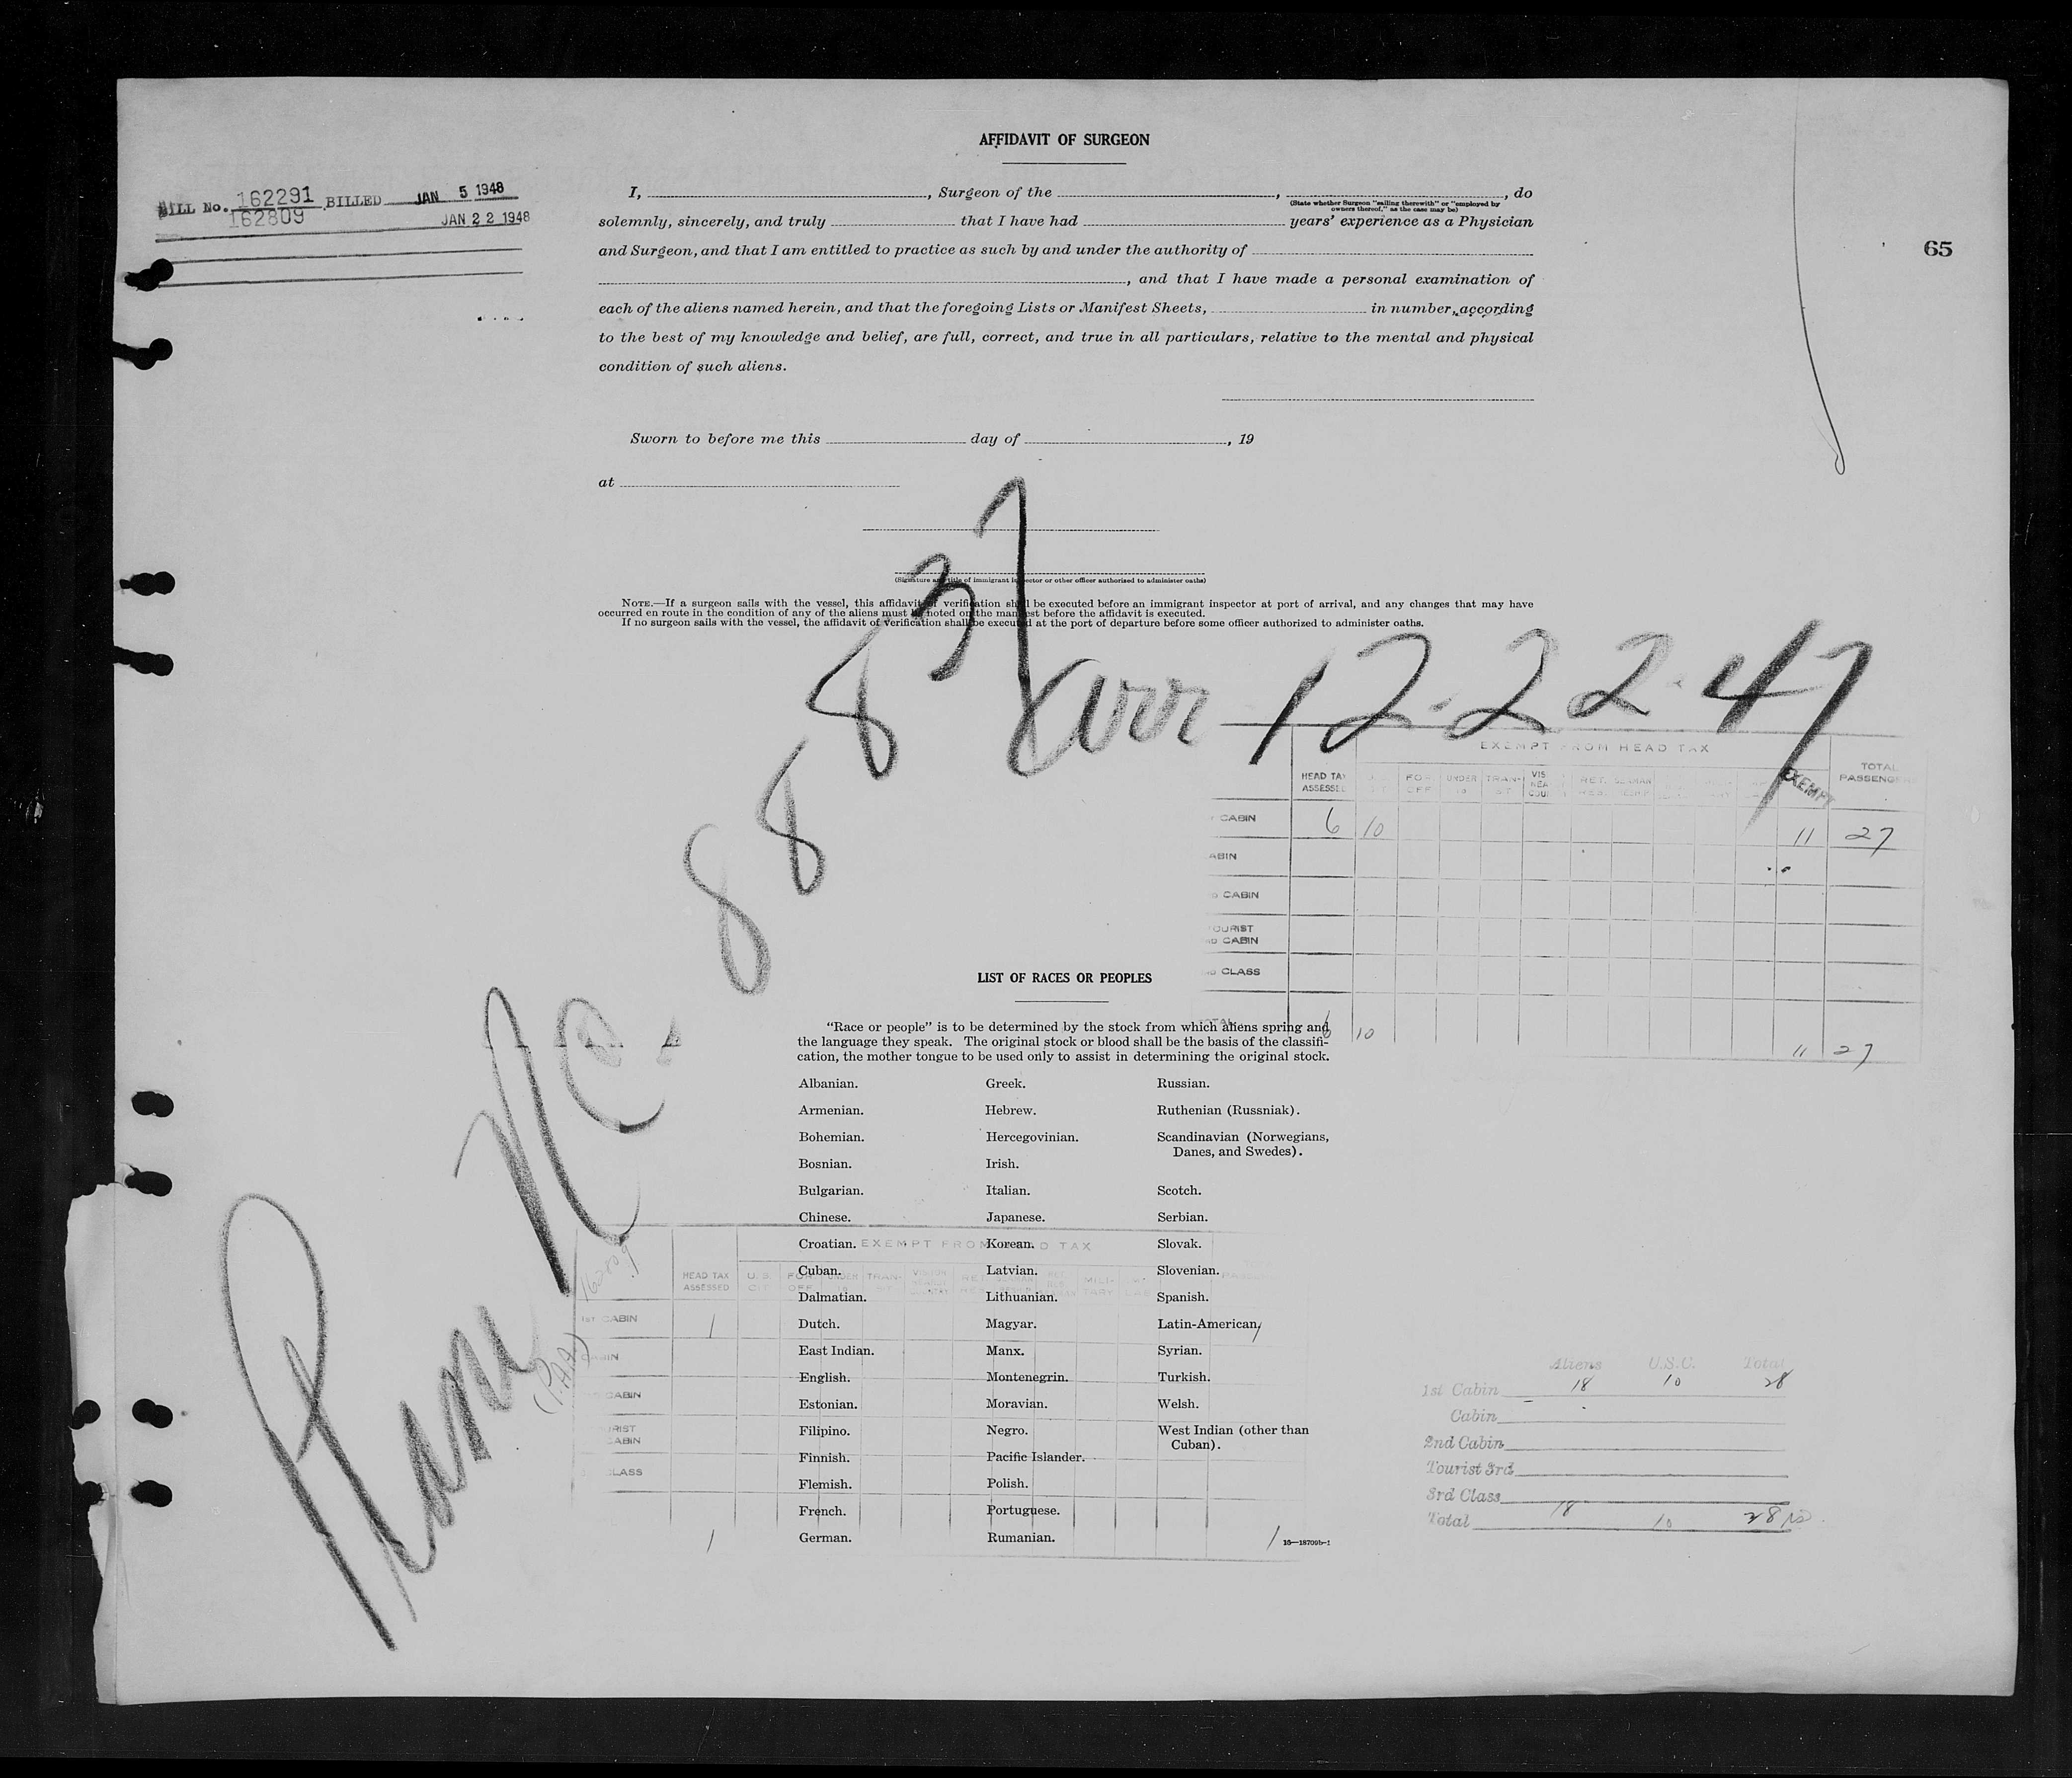 AFFIDAVIT OF SURGEON
BILL No. 162291 BILLED JAN 5 1948
162809 JAN 22 1948
65
I, , Surgeon of the , , do
(State whether Surgeon "sailing therewith" or "employed by
owners thereof," as the case may be)
solemnly, sincerely, and truly that I have had years' experience as a Physician
and Surgeon, and that I am entitled to practice as such by and under the authority of
, and that I have made a personal examination of
each of the aliens named herein, and that the foregoing Lists or Manifest Sheets, in number, according
to the best of my knowledge and belief, are full, correct, and true in all particulars, relative to the mental and physical
condition of such aliens.
Sworn to before me this day of , 19
at
(Signature and title of immigrant inspector or other officer authorized to administer oaths)
NOTE.—If a surgeon sails with the vessel, this affidavit of verification shall be executed before an immigrant inspector at port of arrival, and any changes that may have
occurred en route in the condition of any of the aliens must be noted on the manifest before the affidavit is executed.
If no surgeon sails with the vessel, the affidavit of verification shall be executed at the port of departure before some officer authorized to administer oaths.
Plane NC. 88837
(P.A.A)
arr 12-22-47
EXEMPT FROM HEAD TAX
HEAD TAX
ASSESSED
FOR
OFF
UNDER
16
TRAN-
SIT
RET.
RES.
EXEMPT
TOTAL
PASSENGERS
CABIN 6 10 11 27
CABIN
CABIN
TOURIST
CABIN
CLASS
TOTAL 6 10 11 27
LIST OF RACES OR PEOPLES
"Race or people" is to be determined by the stock from which aliens spring and
the language they speak. The original stock or blood shall be the basis of the classifi-
cation, the mother tongue to be used only to assist in determining the original stock.
Albanian.
Armenian.
Bohemian.
Bosnian.
Bulgarian.
Chinese.
Croatian.
Cuban.
Dalmatian.
Dutch.
East Indian.
English.
Estonian.
Filipino.
Finnish.
Flemish.
French.
German.
Greek.
Hebrew.
Hercegovinian.
Irish.
Italian.
Japanese.
Korean.
Latvian.
Lithuanian.
Magyar.
Manx.
Montenegrin.
Moravian.
Negro.
Pacific Islander.
Polish.
Portuguese.
Rumanian.
Russian.
Ruthenian (Russniak).
Scandinavian (Norwegians,
Danes, and Swedes).
Scotch.
Serbian.
Slovak.
Slovenian.
Spanish.
Latin-American
Syrian.
Turkish.
Welsh.
West Indian (other than
Cuban).
16—18709b-1
162809
EXEMPT FROM HEAD TAX
HEAD TAX
ASSESSED
U.S.
CIT
TRAN-
MILI-
TARY
1st CABIN 1 1
CABIN
CABIN
CABIN
CLASS
1 1
Aliens U.S.C. Total
1st Cabin 18 10 28
Cabin
2nd Cabin
Tourist 3rd
3rd Class
Total 18 10 28